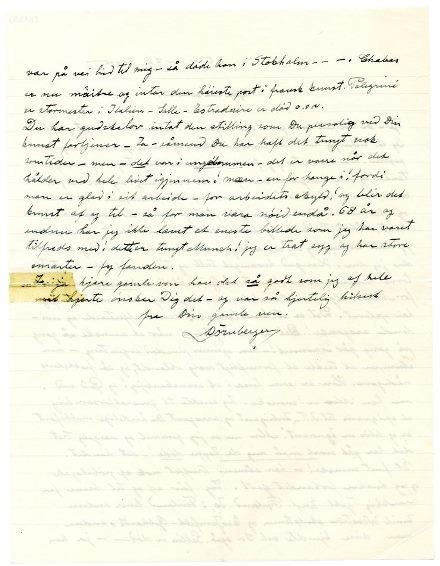 var på vei hid til mig – så döde han i Stokholm – – –. Chabas
er nu mäitre og inter den höieste post i fransk kunst. Pelegrini
er stormester i Italien – Selle – Estradeire er död o.s.v.
Du har gudskelov intat den stilling som Du personlig ved Din
kunst fortjener – Ja – såmend Du har haft det tungt nok
somtider – men – det var i ungdommen – det er værre når det
holder ved hele livet igjennem i – en – for hange i fordi
man er glad i sit arbeide – for arbeidets skyld og blir det
kunst af og til – så får man være nöid endå. 68 år og
endnu har jeg ikke lavet et eneste billede som jeg har været
tilfreds med! dette er tungt Munch! jeg er træt syg og har store
smærter – fy fanden.
kjære gamle ven hav det så godt som jeg af hele
mit hjerte önsker Dig det – og vær så hjertelig hilset
fra Din gamle ven.
Dörnberger